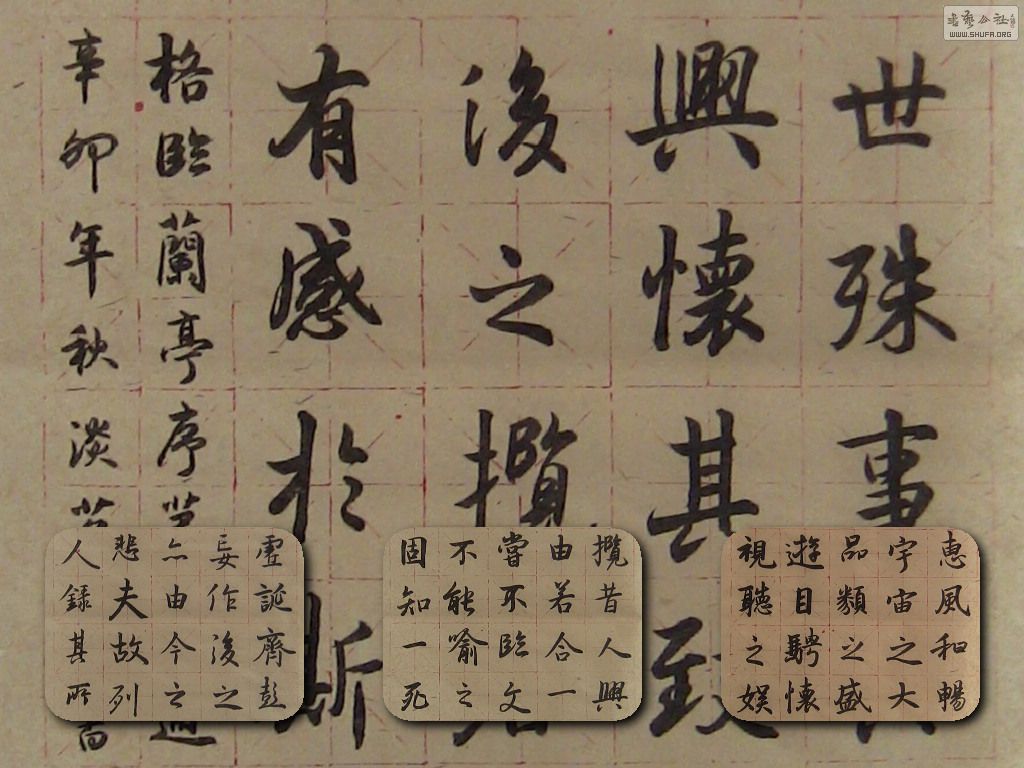 世殊事
興懷其致
後之攬
有感於斯
格臨蘭亭序
辛卯年秋淡
惠風和暢
宇宙之大
品類之盛
遊目騁懷
視聽之娛
攬昔人興
由若合一
嘗不臨文
不能喻之
固知一死
虛誕齊彭
妄作後之
亦由今之
悲夫故列
人錄其所
書藝公社
WWW.SHUFA.ORG